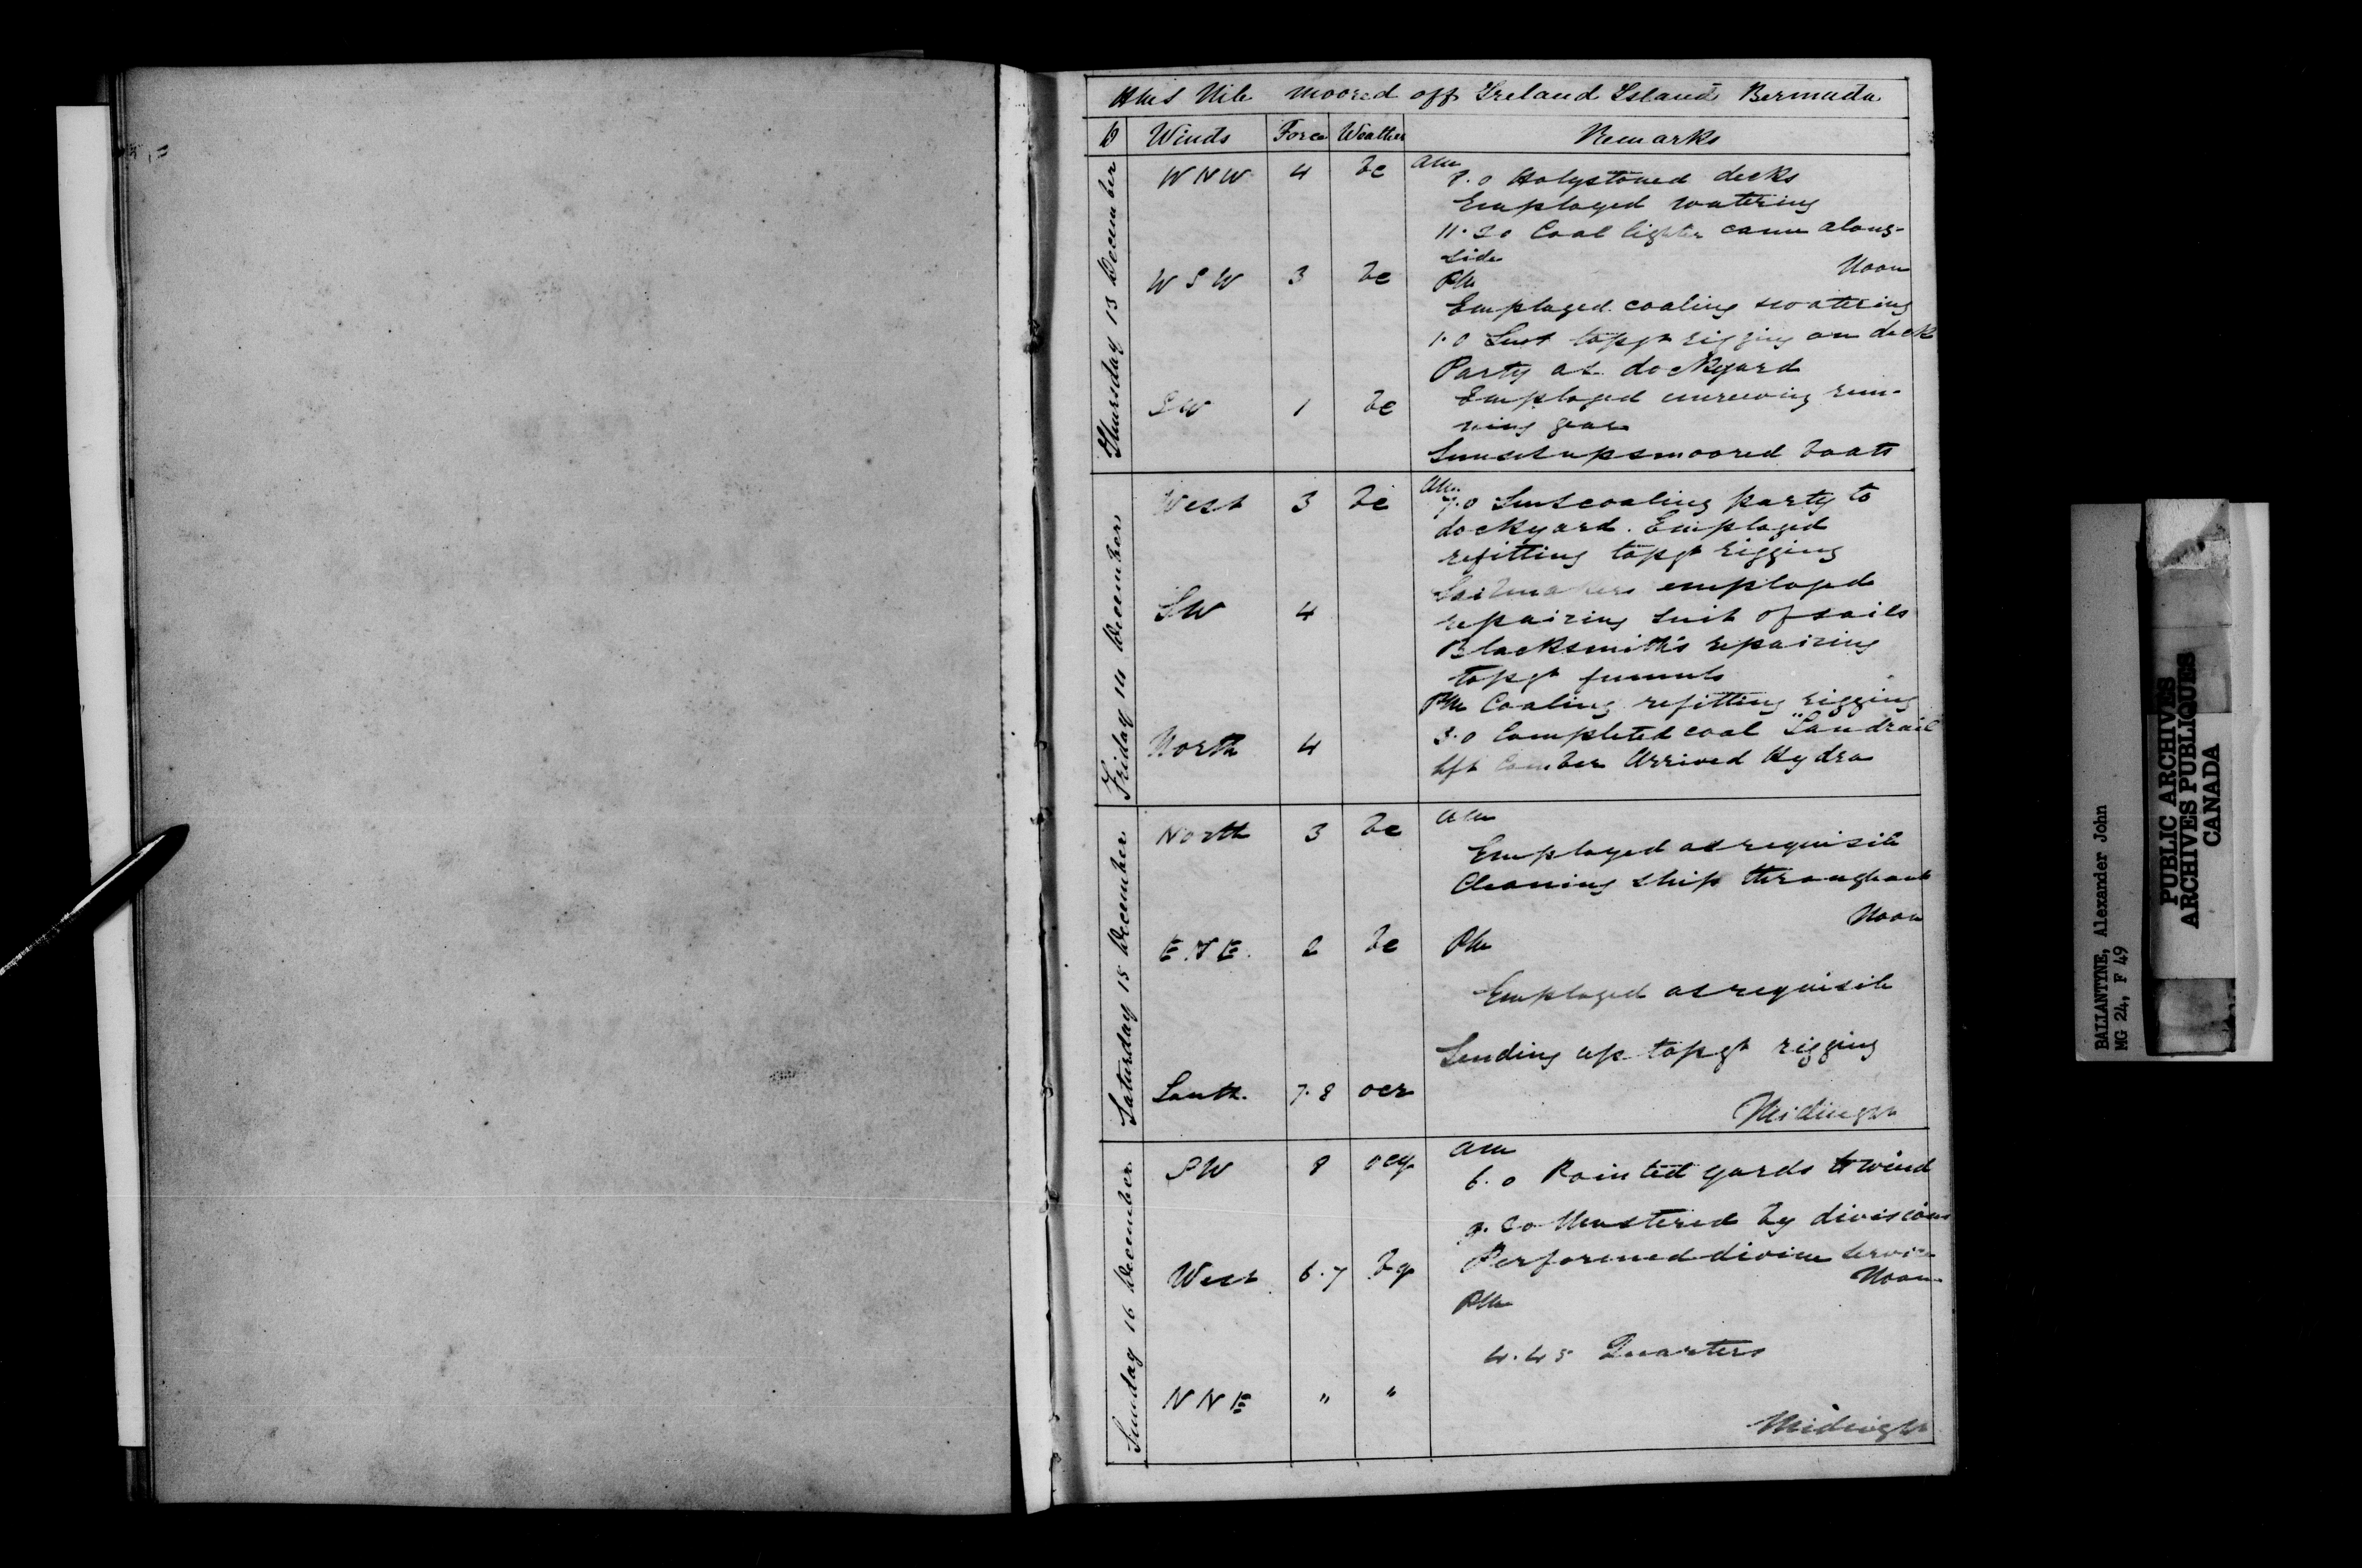 HMS Nile moored off Ireland Island Bermuda
D Winds Force Weather Remarks
Thursday 13 December
WNW 4 bc am
8.0 Holystoned decks
Employed watering
11.30 Coal lighter came along-
side Noon
WSW 3 bc PM
Employed coaling & watering
1.0 Sent topgt rigging on deck
Party at dockyard
SW 1 bc Employed unreeving run-
ning gear
Sunset up & moored boats
Friday 14 December
West 3 bc am
7.0 Sent coaling party to
dockyard. Employed
refitting topgt rigging
Sailmakers employed
SW 4 repairing suit of sails
Blacksmiths repairing
topgt funnels
PM Coaling refitting rigging
3.0 Completed coal "Landrail
North 4 left Arrived Hydra
Saturday 15 December
North 3 bc am
Employed as requisite
Cleaning ship throughout
Noon
E.N.E. 2 bc PM
Employed as requisite
Sending up topgt rigging
South. 7.8 ocr
Midnight
Sunday 16 December
SW 8 ocq am
6.0 Pointed yards to wind
9.30 Mustered by divisions
Performed divine service
West 6.7 bq Noon
PM
4.45 Quarters
NNE " "
Midnight
BALLANTYNE, Alexander John
MG 24, F 49
PUBLIC ARCHIVES
ARCHIVES PUBLIQUES
CANADA